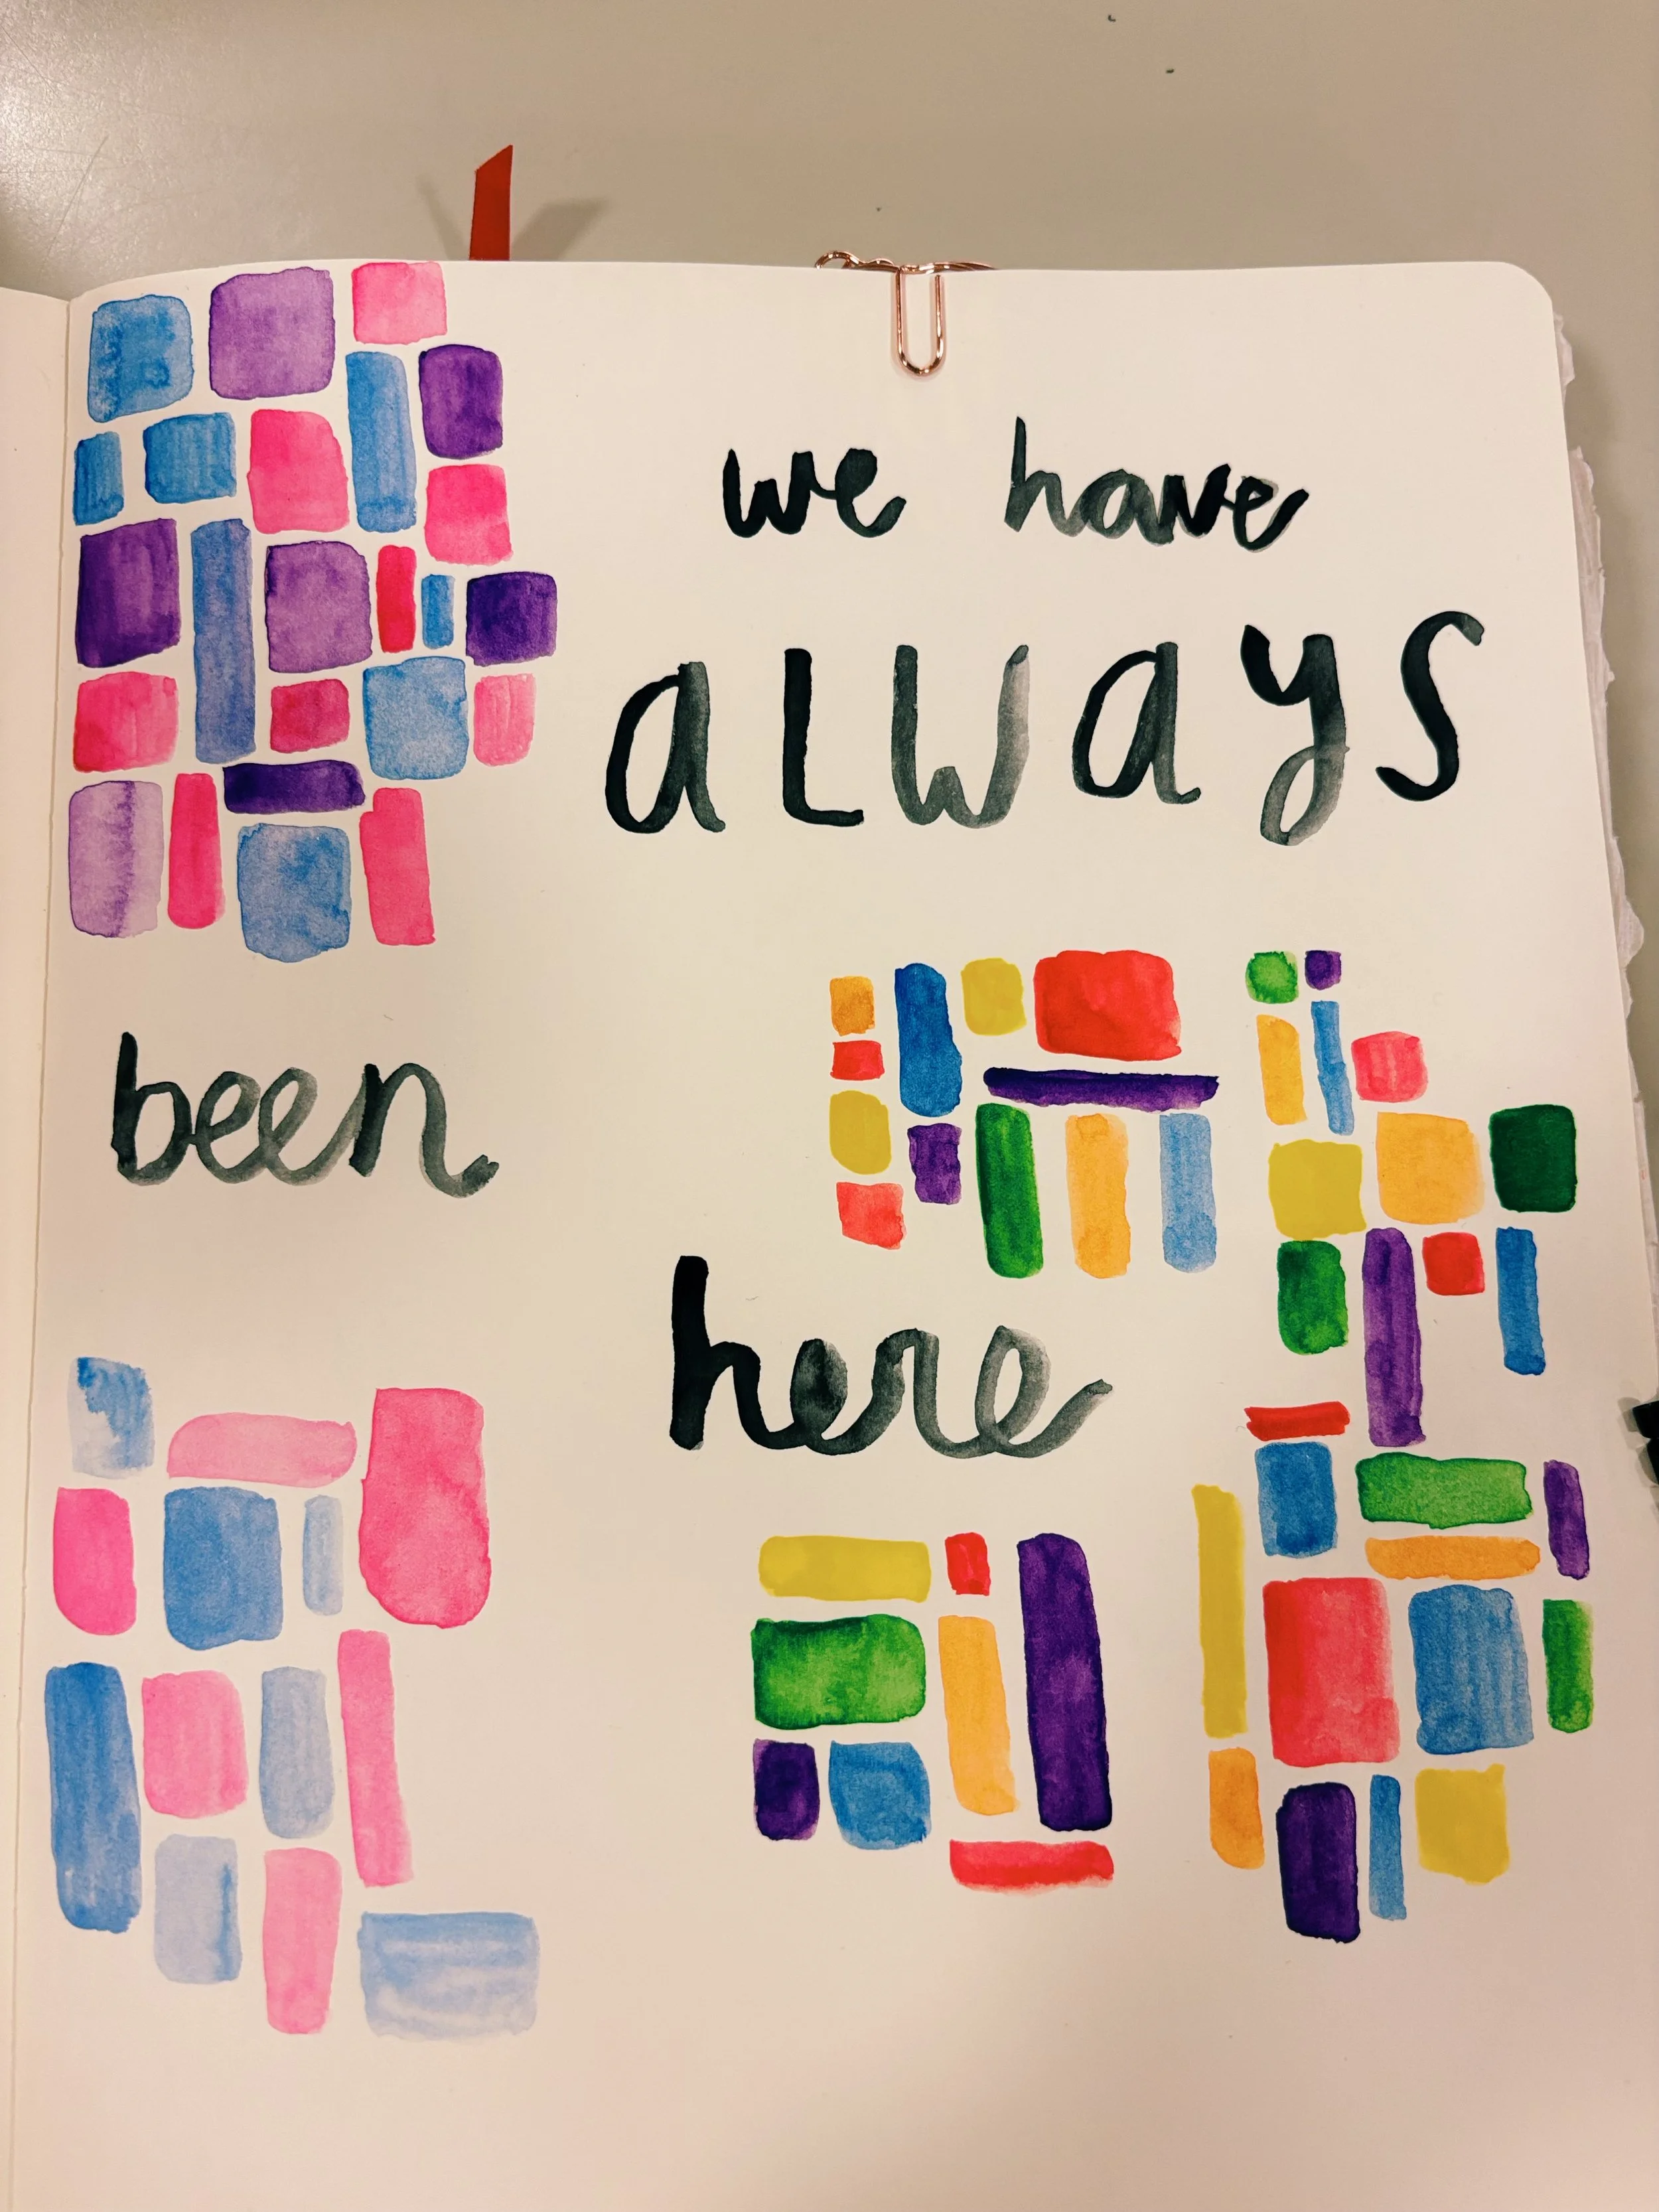 we have
aLWays
been
here